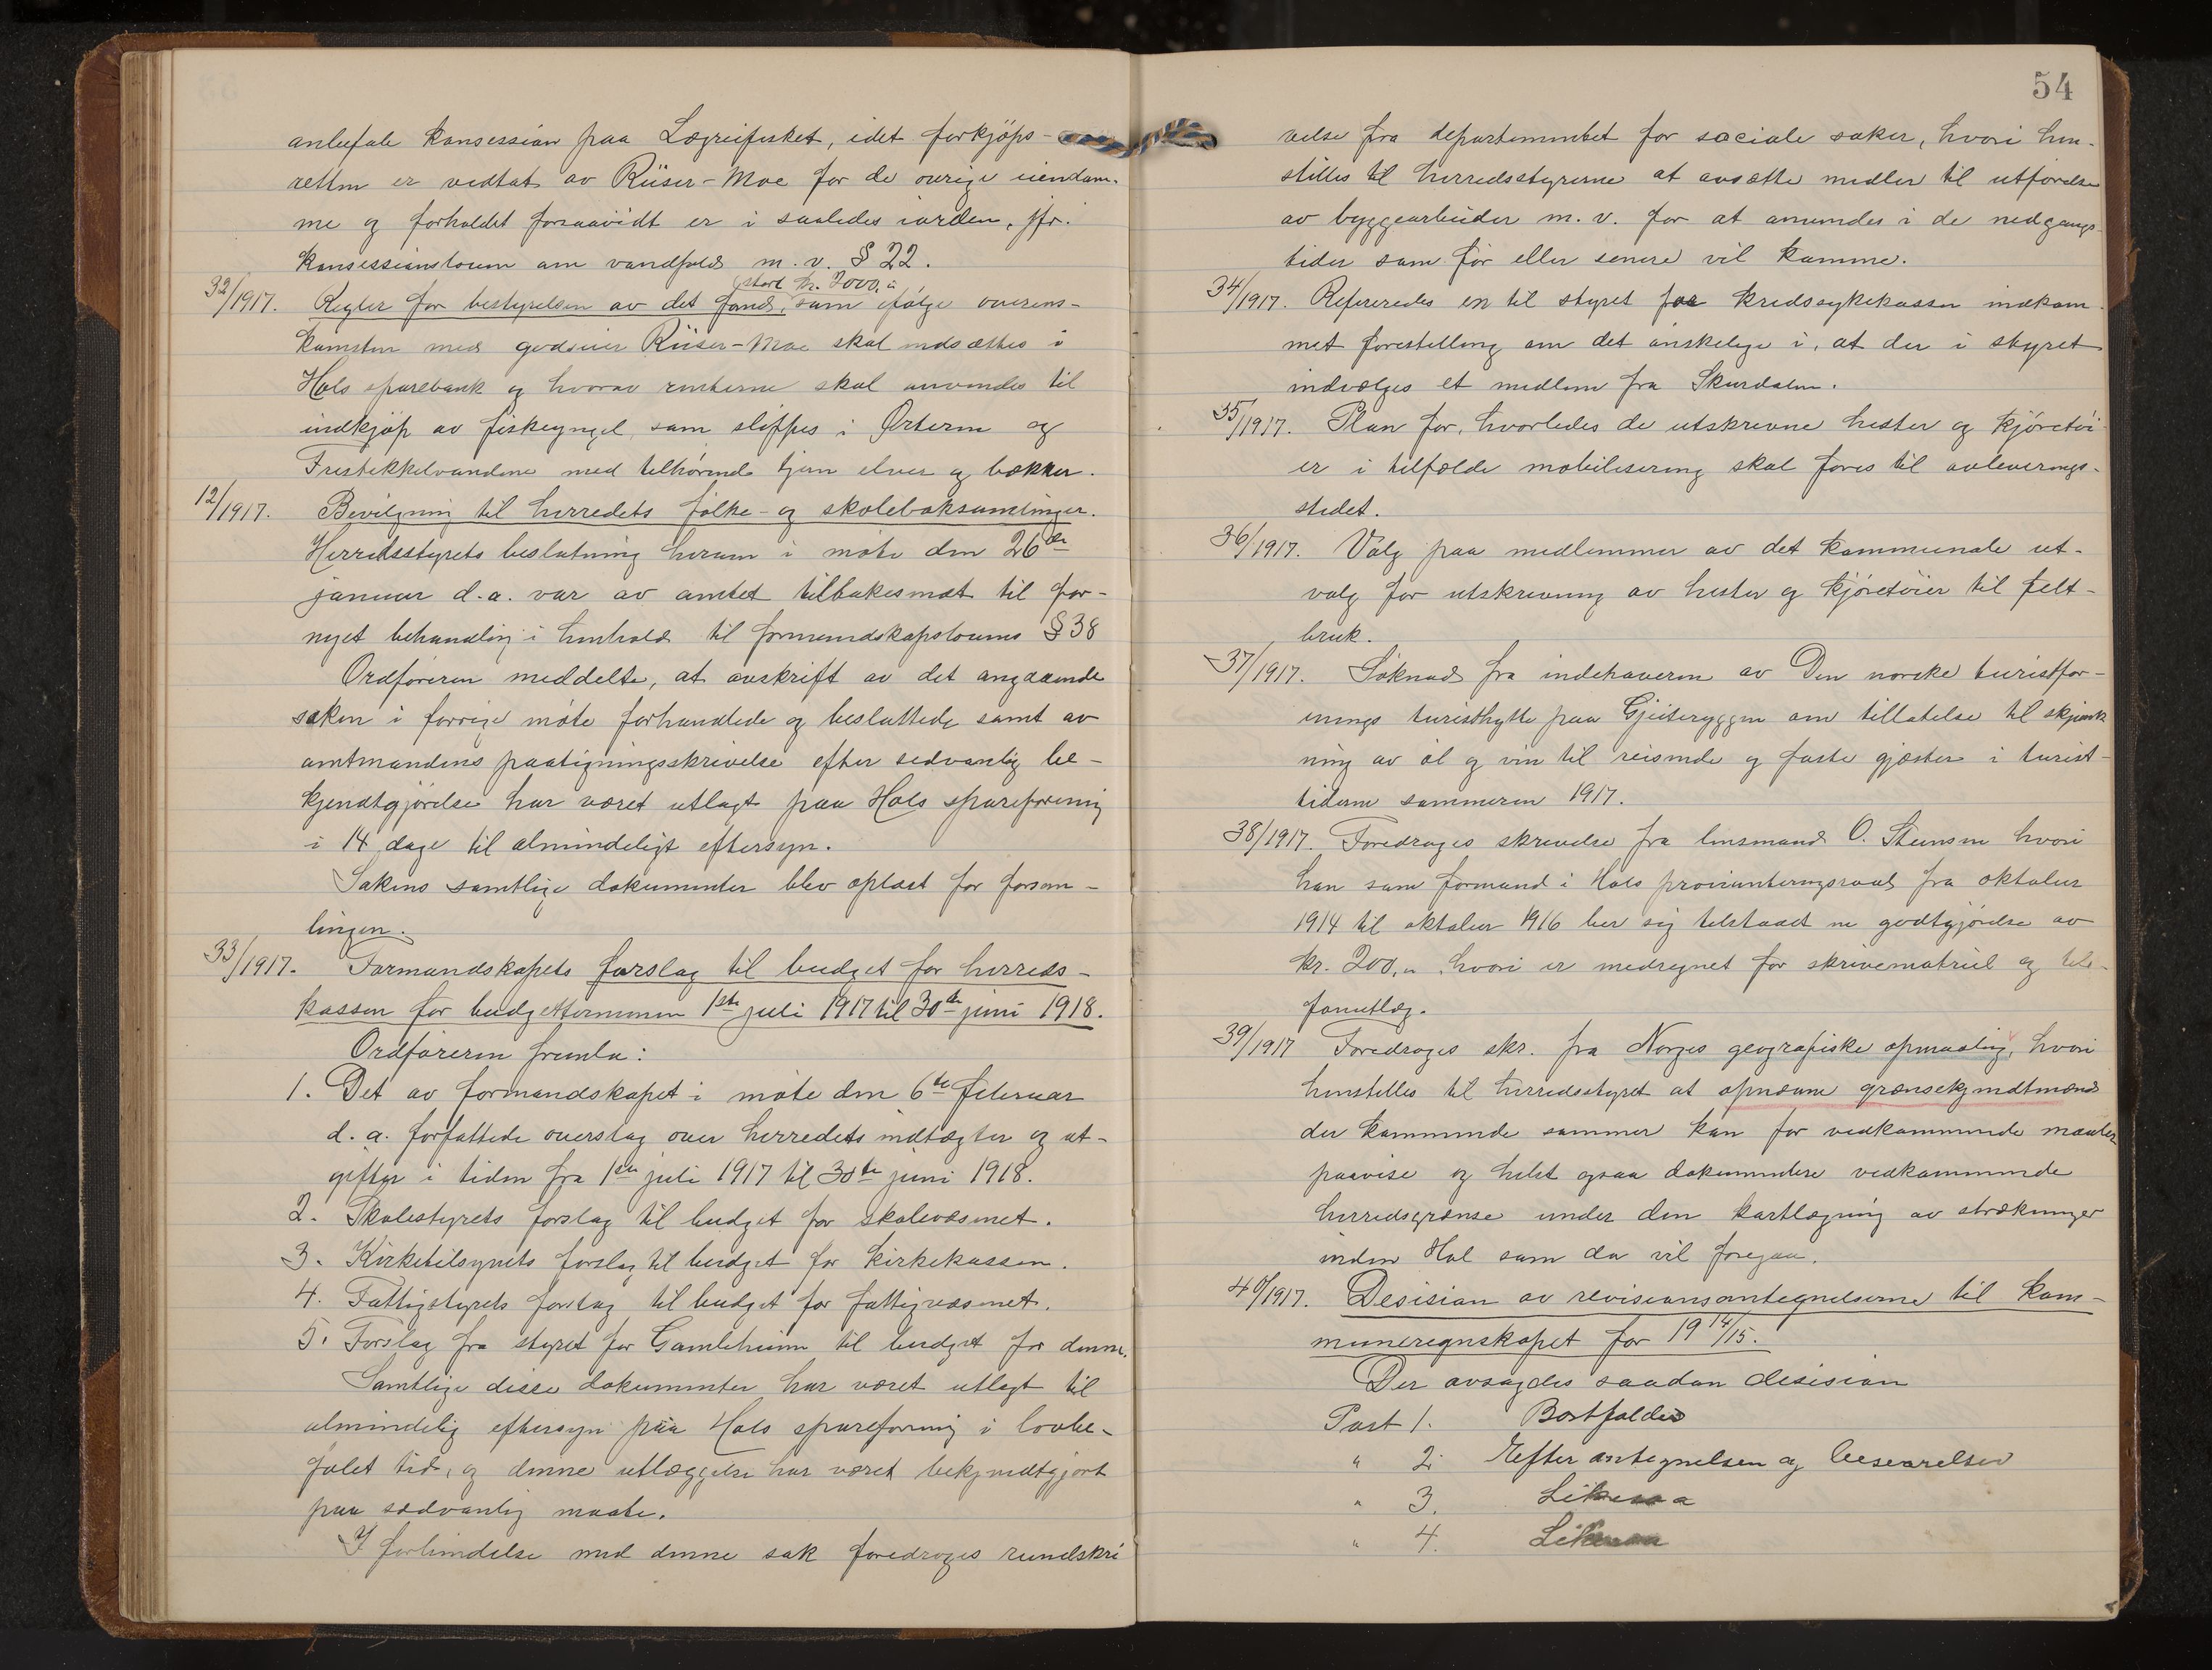 anbefale konsession paa Lægreifisket, idet forkjøps-
retten er vedtat av Rüser-Moe for de øvrige eiendom-
me og forholdet forsaavidt er i saaledes iorden, jfr.
konsessionsloven om vandfald m. v. § 22.
stort kr. 2000,"
32/1917. Regler for bestyrelsen av det fond, som ifølge overens-
komsten med godseier Rüser-Moe skal indsættes i
Hols sparebank og hvorav renterne skal anvendes til
indkjøp av fiskeyngel, som slippes i Ørteren og
Frestikkelvandene med tilhørende tjern elver og bækker.
12/1917. Bevilgning til herredets folke- og skoleboksamlinger.
Herredsstyrets beslutning herom i møte den 26de
januar d.a. var av amtet tilbakesendt til for-
nyet behandling i henhold til formandskapslovens § 38
Ordføreren meddelte, at avskrift av det angaaende
saken i forrige møte forhandlede og besluttede samt av
amtmandens paategningsskrivelse efter sedvanlig be-
kjendtgjørelse har været utlagt paa Hols spareforening
i 14 dage til almindeligt eftersyn.
Sakens samtlige dokumenter blev oplæst for forsam-
lingen.
33/1917. Formandskapets forslag til budget for herreds-
kassen for budgetterminen 1ste juli 1917 til 30te juni 1918.
Ordføreren fremla:
1. Det av formandskapet i møte den 6te februar
d. a. forfattede overslag over herredets indtægter og ut-
gifter i tiden fra 1ste juli 1917 til 30te juni 1918.
2. Skolestyrets forslag til budget for skolevæsenet.
3. Kirketilsynets forslag til budget for kirkekassen.
4. Fattigstyrets forslag til budget for fattigvæsenet.
5. Forslag fra styret for Gamleheim til budget for denne.
Samtlige disse dokumenter har været utlagt til
almindelig eftersyn paa Hols spareforening i lovbe-
falet tid, og denne utlæggelse har været bekjendtgjort
paa sædvanlig maate.
I forbindelse med denne sak foredroges rundskri
54
velse fra departementet for sociale saker, hvori hen-
stilles til herredsstyrerne at avsætte midler til utførelse
av byggearbeider m. v. for at anvendes i de nedgangs-
tider som før eller senere vil komme.
34/1917. Refereredes en til styret for kredssykekassen indkom
met forestilling om det ønskelige i, at der i styret
indvælges et medlem fra Skurdalen.
35/1917. Plan for, hvorledes de utskrevne hester og kjøretøi
er i tilfælde mobilisering skal føres til avleverings-
stedet.
36/1917. Valg paa medlemmer av det kommunale ut-
valg for utskrivning av hester og kjøretøier til felt-
bruk.
37/1917. Søknad fra indehaveren av Den norske turistfor-
enings turisthytte paa Gjeiteryggen om tillatelse til skjænk
ning av øl og vin til reisende og faste gjæster i turist-
tiderne sommeren 1917.
38/1917. Foredroges skrivelse fra lensmand O. Steensen hvori
han som formand i Hols provianteringsraad fra oktober
1914 til oktober 1916 ber sig tilstaaet en godtgjørelse av
kr. 200," hvori er medregnet for skrivematriel og tele-
fonutlæg.
39/1917 Foredroges skr. fra Norges geografiske opmaaling, hvori
henstilles til herredsstyret at opnævne grænsekjendtmænd
der kommende sommer kan for vedkommende maaler
paavise og helst ogsaa dokumentere vedkommende
herredsgrænse under den kartlægning av strækninger
inden Hol som da vil foregaa.
40/1917. Desision av revisionsantegnelserne til kom-
muneregnskapet for 1914/15.
Der avsagdes saadan desision
Post 1. Bortfalder
" 2. Efter antegnelsen og besvarelsen
" 3. Likesaa
" 4. Likesaa